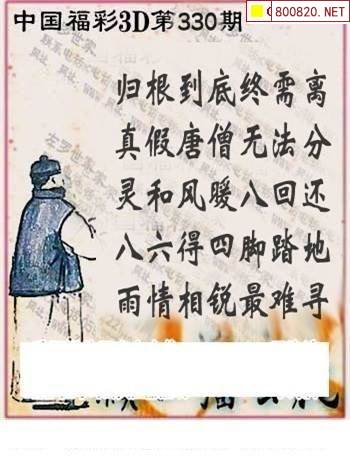 800820.NET
中国福彩3D第330期
归根到底终需离
真假唐僧无法分
灵和风暖八回还
八六得四脚踏地
雨情相锐最难寻